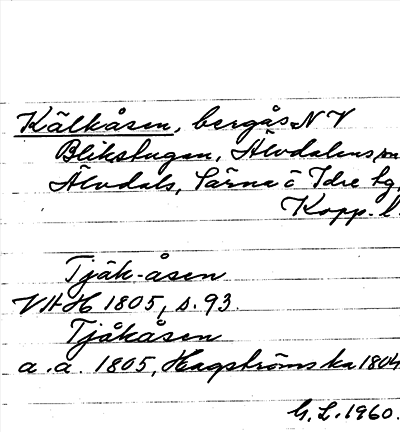 Kälkåsen, bergås NV
Blikstugan, Älvdalens sn
Älvdals, Särna o Idre tg,
Kopp. l.
Tjäk-åsen
VHH 1805, s. 93.
Tjåkåsen
a.a. 1805, Hagströms ka 1804
G. L. 1960.